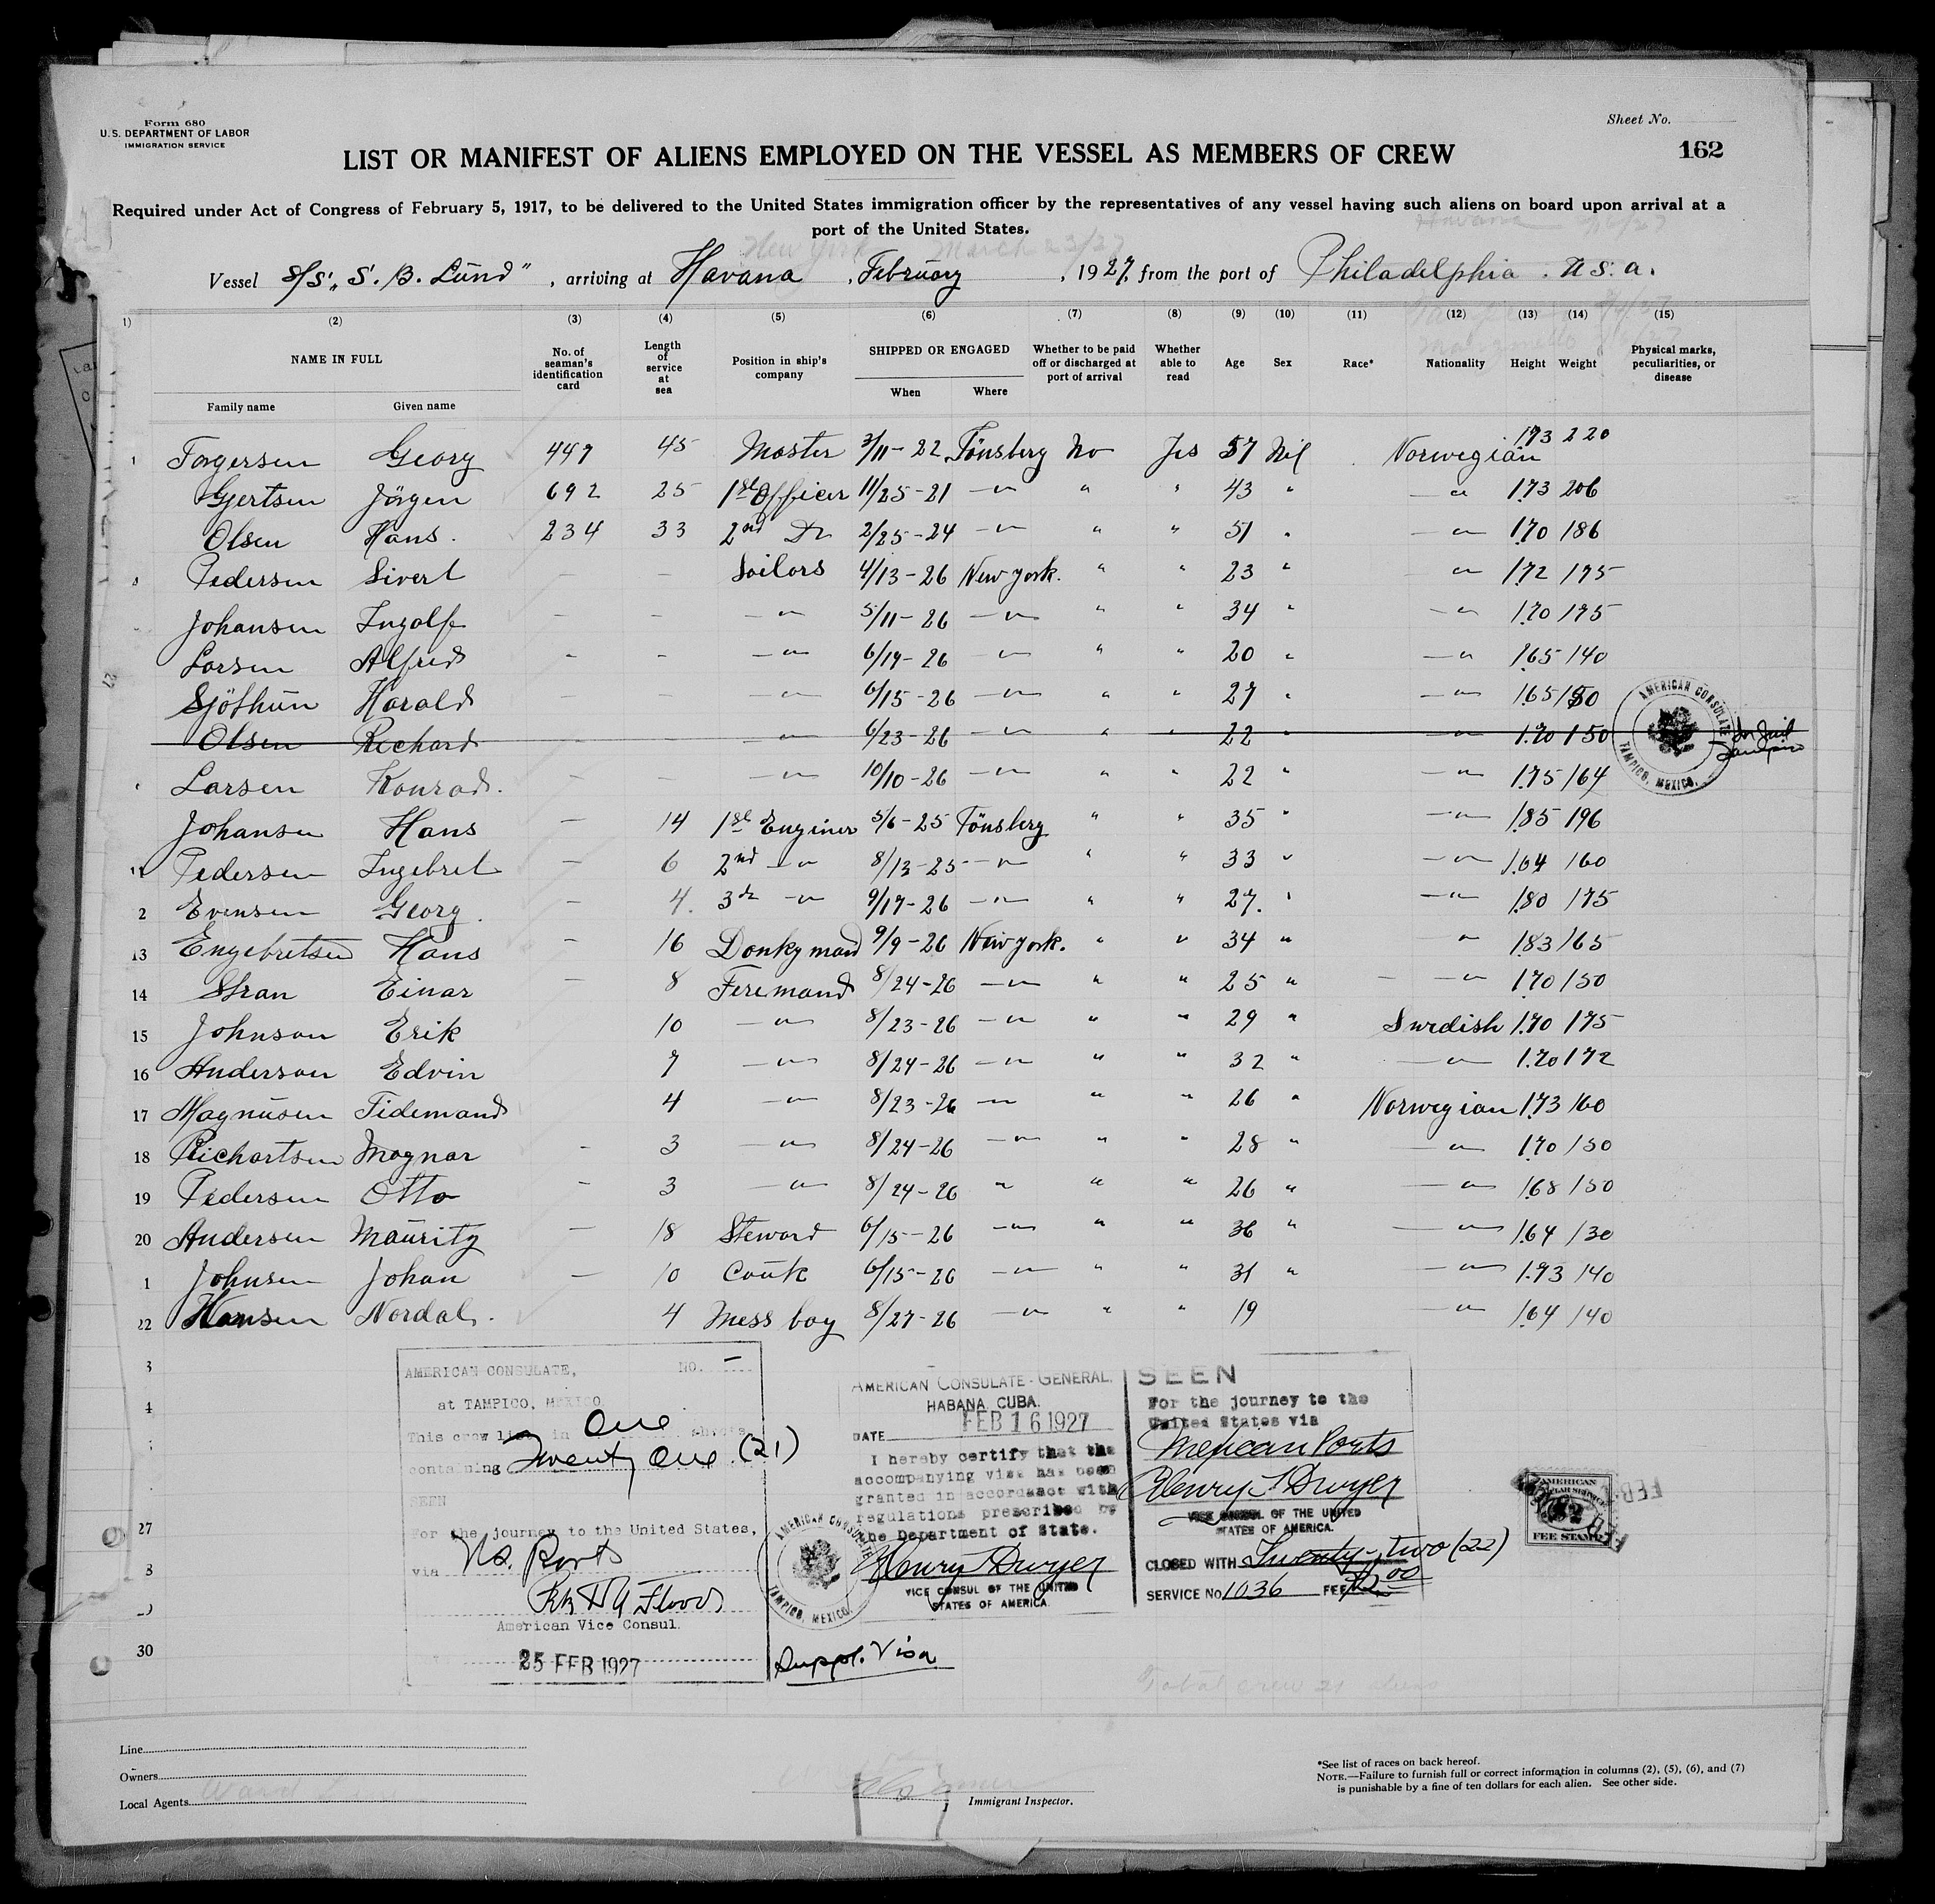 Form 680
U.S. DEPARTMENT OF LABOR
IMMIGRATION SERVICE
Sheet No.
162
LIST OR MANIFEST OF ALIENS EMPLOYED ON THE VESSEL AS MEMBERS OF CREW
Required under Act of Congress of February 5, 1917, to be delivered to the United States immigration officer by the representatives of any vessel having such aliens on board upon arrival at a
port of the United States.
New York March 23/27
Vessel S/S „S. B. Lund" , arriving at Havana , February , 1927, from the port of Philadelphia . U.S.A.
1) (2) (3) (4) (5) (6) (7) (8) (9) (10) (11) (12) (13) (14) (15)
NAME IN FULL No. of seaman's identification card Length of service at sea Position in ship's company SHIPPED OR ENGAGED Whether to be paid off or discharged at port of arrival Whether able to read Age Sex Race* Nationality Height Weight Physical marks, peculiarities, or disease
Family name Given name When Where
1 Torgersen Georg 447 45 Master 3/11-22 Tönsberg No Yes 57 Nil Norwegian 1.73 220
Gjertsen Jörgen 692 25 1st Officer 11/25-21 —"— " " 43 " —"— 1.73 206
Olsen Hans. 234 33 2nd Do 2/25-24 —"— " " 51 " —"— 1.70 186
Pedersen Sivert — — Sailors 4/13-26 New York. " " 23 " —"— 1.72 175
Johansen Ingolf — — —"— 5/11-26 —"— " " 34 " —"— 1.70 175
Larsen Alfred - - —"— 6/14-26 —"— " " 20 " —"— 1.65 140
Sjöthun Harald — — —"— 6/15-26 —"— " " 27 " —"— 1.65 150
Olsen Richard — — —"— 6/23-26 —"— " " 22 —"— 1.70 150 In Jail Tampico
AMERICAN CONSULATE TAMPICO, MEXICO.
Larsen Konrad. — — —"— 10/10-26 —"— " " 22 " —"— 1.75 164
Johansen Hans — 14 1st Enginer 5/6-25 Tönsberg " " 35 " —"— 1.85 196
11 Pedersen Ingebret — 6 2nd —"— 8/13-25 —"— " " 33 " —"— 1.64 160
2 Evensen Georg. — 4. 3d —"— 9/17-26 —"— " " 27. " —"— 1.80 175
13 Engebretsen Hans — 16 Donkymand 9/9-26 New York. " " 34 " " 1.83 165
14 Stran Einar — 8 Feremand 8/24-26 —"— " " 25 " —"— 1.70 150
15 Johnson Erik 10 —"— 8/23-26 —"— " " 29 " Swedish 1.70 175
16 Anderson Edvin 7 —"— 8/24-26 —"— " " 32 " —"— 1.70 172
17 Magnusen Tidemand 4 —"— 8/23-26 —"— " " 26 " Norwegian 1.73 160
18 Richartsen Magnar - 3 —"— 8/24-26 —"— " " 28 " —"— 1.70 150
19 Pedersen Otto - 3 —"— 8/24-26 " " " 26 " —"— 1.68 150
20 Andersen Mauritz — 18 Steward 6/15-26 —"— " " 36 " —"— 1.64 130
1 Johnsen Johan — 10 Couk 6/15-26 —"— " " 31 " —"— 1.73 140
22 Hansen Nordal. 4 Mess boy 8/27-26 —"— " " 19 —"— 1.64 140
3
4
27
8
30
AMERICAN CONSULATE, NO. —
at TAMPICO, MEXICO
This crew list, in One sheets
containing Twenty One (21)
SEEN
For the journey to the United States,
via US. Ports
American Vice Consul.
25 FEB 1927
AMERICAN CONSULATE TAMPICO, MEXICO.
Suppl. Visa
AMERICAN CONSULATE-GENERAL,
HABANA, CUBA.
DATE FEB 16 1927
I hereby certify that the
accompanying visa has been
granted in accordance with
regulations prescribed by
the Department of State.
Henry T Dwyer
VICE CONSUL OF THE UNITED
STATES OF AMERICA.
SEEN
For the journey to the
United States via
Mexican Ports
Henry T Dwyer
VICE CONSUL OF THE UNITED
STATES OF AMERICA.
CLOSED WITH Twenty-two (22)
SERVICE No. 1036 FEE $2.00
AMERICAN
FEE STAMP
Total crew 21 aliens
Line
Owners
Local Agents
Immigrant Inspector.
*See list of races on back hereof.
NOTE.—Failure to furnish full or correct information in columns (2), (5), (6), and (7)
is punishable by a fine of ten dollars for each alien. See other side.